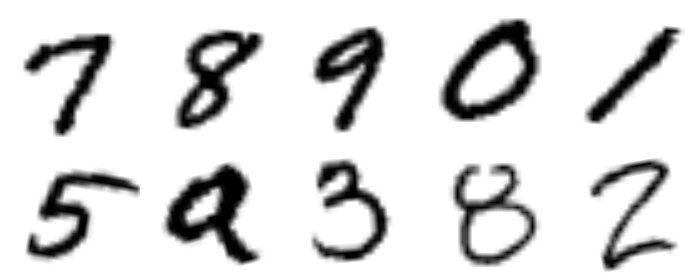 7 8 9 0 1
5 2 3 8 2